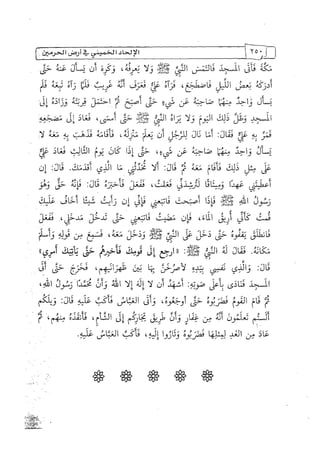 ٢٥٠ الإلحاد الخميني في أرض الحرمين
مكة فأتى المسجد فالتمس النبي ﷺ ولا يعرفه، وكره أن يسأل عنه حتى
أدركه بعض الليل فاضطجع، فرآه علي فعرف أنه غريب فلما رآه تبعه فلم
يسأل واحد منهما صاحبه عن شيء حتى أصبح ثم احتمل قربته وزاده إلى
المسجد وظل ذلك اليوم ولا يراه النبي ﷺ حتى أمسى، فعاد إلى مضجعه
فمر به علي فقال: أما نال للرجل أن يعلم منزله، فأقامه فذهب به معه لا
يسأل واحد منهما صاحبه عن شيء، حتى إذا كان يوم الثالث فعاد علي
على مثل ذلك فأقام معه ثم قال: ألا تحدثني ما الذي أقدمك. قال: إن
أعطيتني عهدا وميثاقا لترشدني فعلت، ففعل فأخبره قال: فإنه حق وهو
رسول الله ﷺ فإذا أصبحت فاتبعني فإني إن رأيت شيئا أخاف عليك
قمت كأني أريق الماء، فإن مضيت فاتبعني حتى تدخل مدخلي، ففعل
فانطلق يقفوه حتى دخل على النبي ﷺ ودخل معه، فسمع من قوله وأسلم
مكانه. فقال له النبي ﷺ: «ارجع إلى قومك فأخبرهم حتى يأتيك أمري»
قال: والذي نفسي بيده لأصرخن بها بين ظهرانيهم، فخرج حتى أتى
المسجد فنادى بأعلى صوته: أشهد أن لا إله إلا الله وأن محمدا رسول الله،
ثم قام القوم فضربوه حتى أوجعوه، وأتى العباس فأكب عليه قال: ويلكم
ألستم تعلمون أنه من غفار وأن طريق تجاركم إلى الشام، فأنقذه منهم، ثم
عاد من الغد لمثلها فضربوه وثاروا إليه، فأكب العباس عليه.